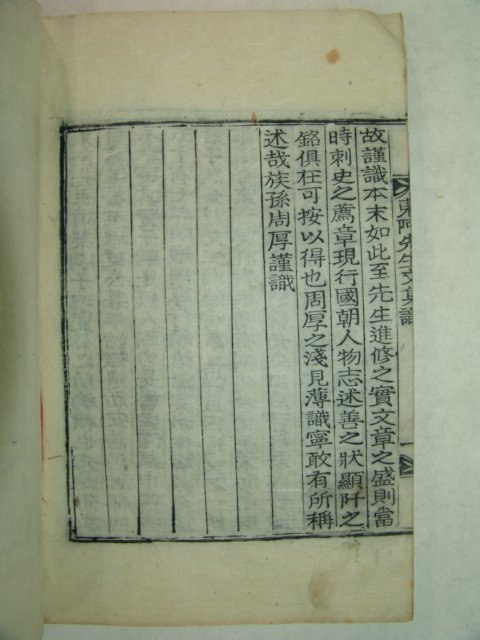 東阿先生文集識
故謹識本末如此至先生進修之實文章之盛則當
時刺史之薦章現行國朝人物志述善之狀顯阡之
銘俱在可按以得也周厚之淺見薄識寧敢有所稱
述哉族孫周厚謹識